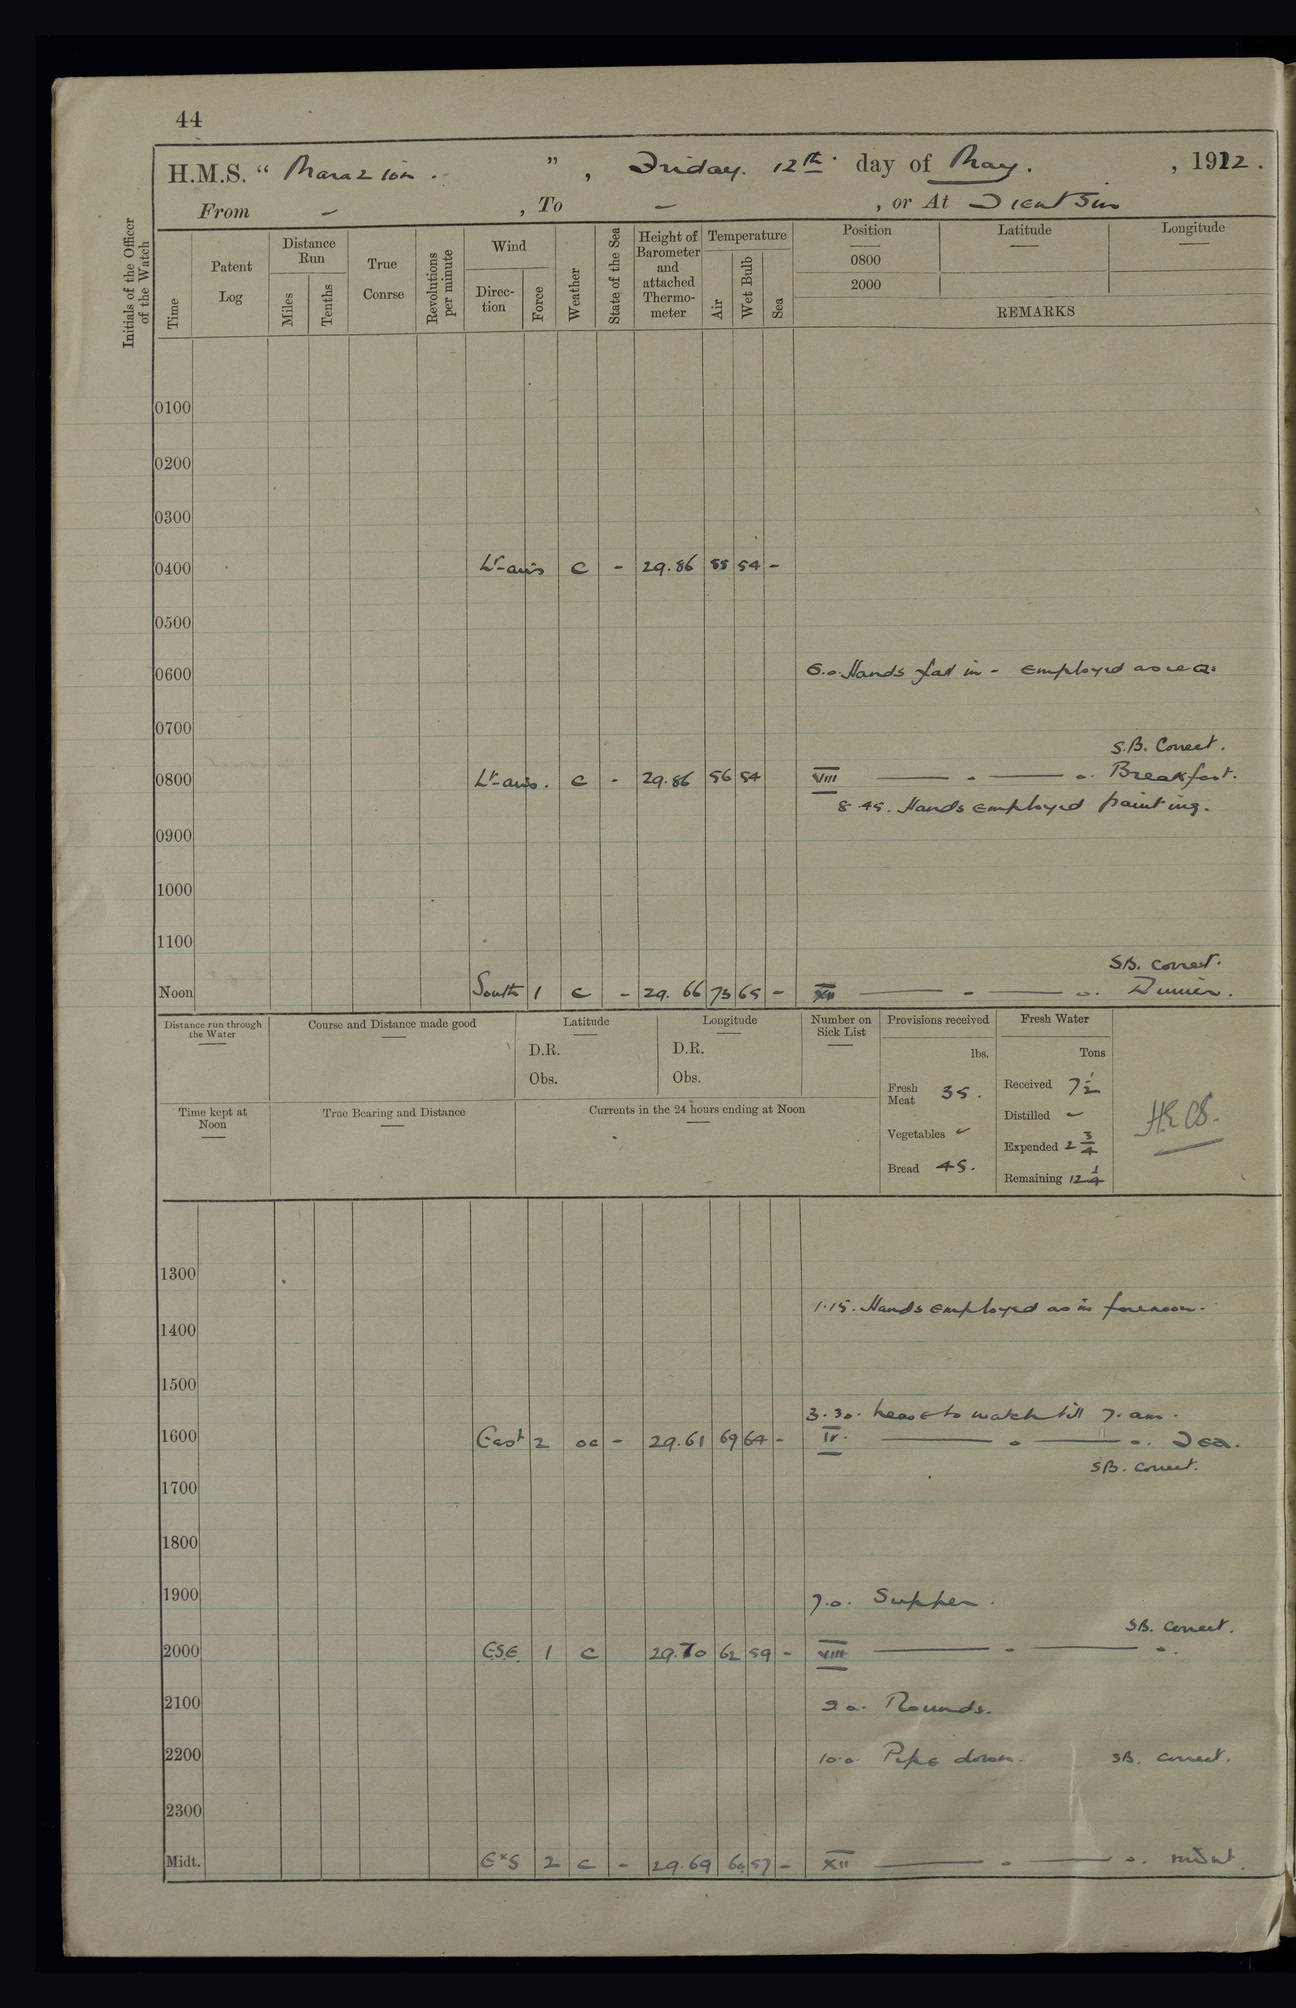 44
H.M.S. " Marazion. ", Friday. 12th. day of May. , 1922.
From – , To – , or At Tientsin
Initials of the Officer of the Watch
Time
Patent Log
Distance Run
Miles
Tenths
True Conrse
Revolutions per minute
Wind
Direc-tion
Force
Weather
State of the Sea
Height of Barometer and attached Thermo-meter
Temperature
Air
Wet Bulb
Sea
Position Latitude Longitude
0800
2000
REMARKS
0100
0200
0300
0400 Lt-airs c - 29.86 55 54 -
0500
0600 6.0. Hands fall in - Employed as req.
0700
S.B. Correct.
0800 Lt-airs. c - 29.86 56 54 VIII — . — o. Breakfast.
8.45. Hands employed painting.
0900
1000
1100
SB. correct.
Noon South 1 c - 29. 66 73 65 - XII — . — o. Dinner.
Distance run through the Water
Course and Distance made good
Latitude
D.R.
Obs.
Longitude
D.R.
Obs.
Number on Sick List
Provisions received
lbs.
Fresh Meat 35.
Vegetables -
Bread 45.
Fresh Water
Tons
Received 7 1/2
Distilled -
Expended 2 3/4
Remaining 12 1/4
Time kept at Noon
True Bearing and Distance
Currents in the 24 hours ending at Noon
1300
1.15. Hands employed as in forenoon.
1400
1500
3.30. Leave to watch till 7. am.
1600 East 2 oc - 29.61 69 64 - IV. — o — o. Tea.
SB. correct.
1700
1800
1900 7.0. Supper.
SB. correct.
2000 E.S.E. 1 c 29.70 62 59 - VIII — . — o.
2100 9.0. Rounds.
2200 10.0. Pipe down. SB. correct.
2300
Midt. ExS 2 c - 29.69 60 57 - XII — o — o. midnt.